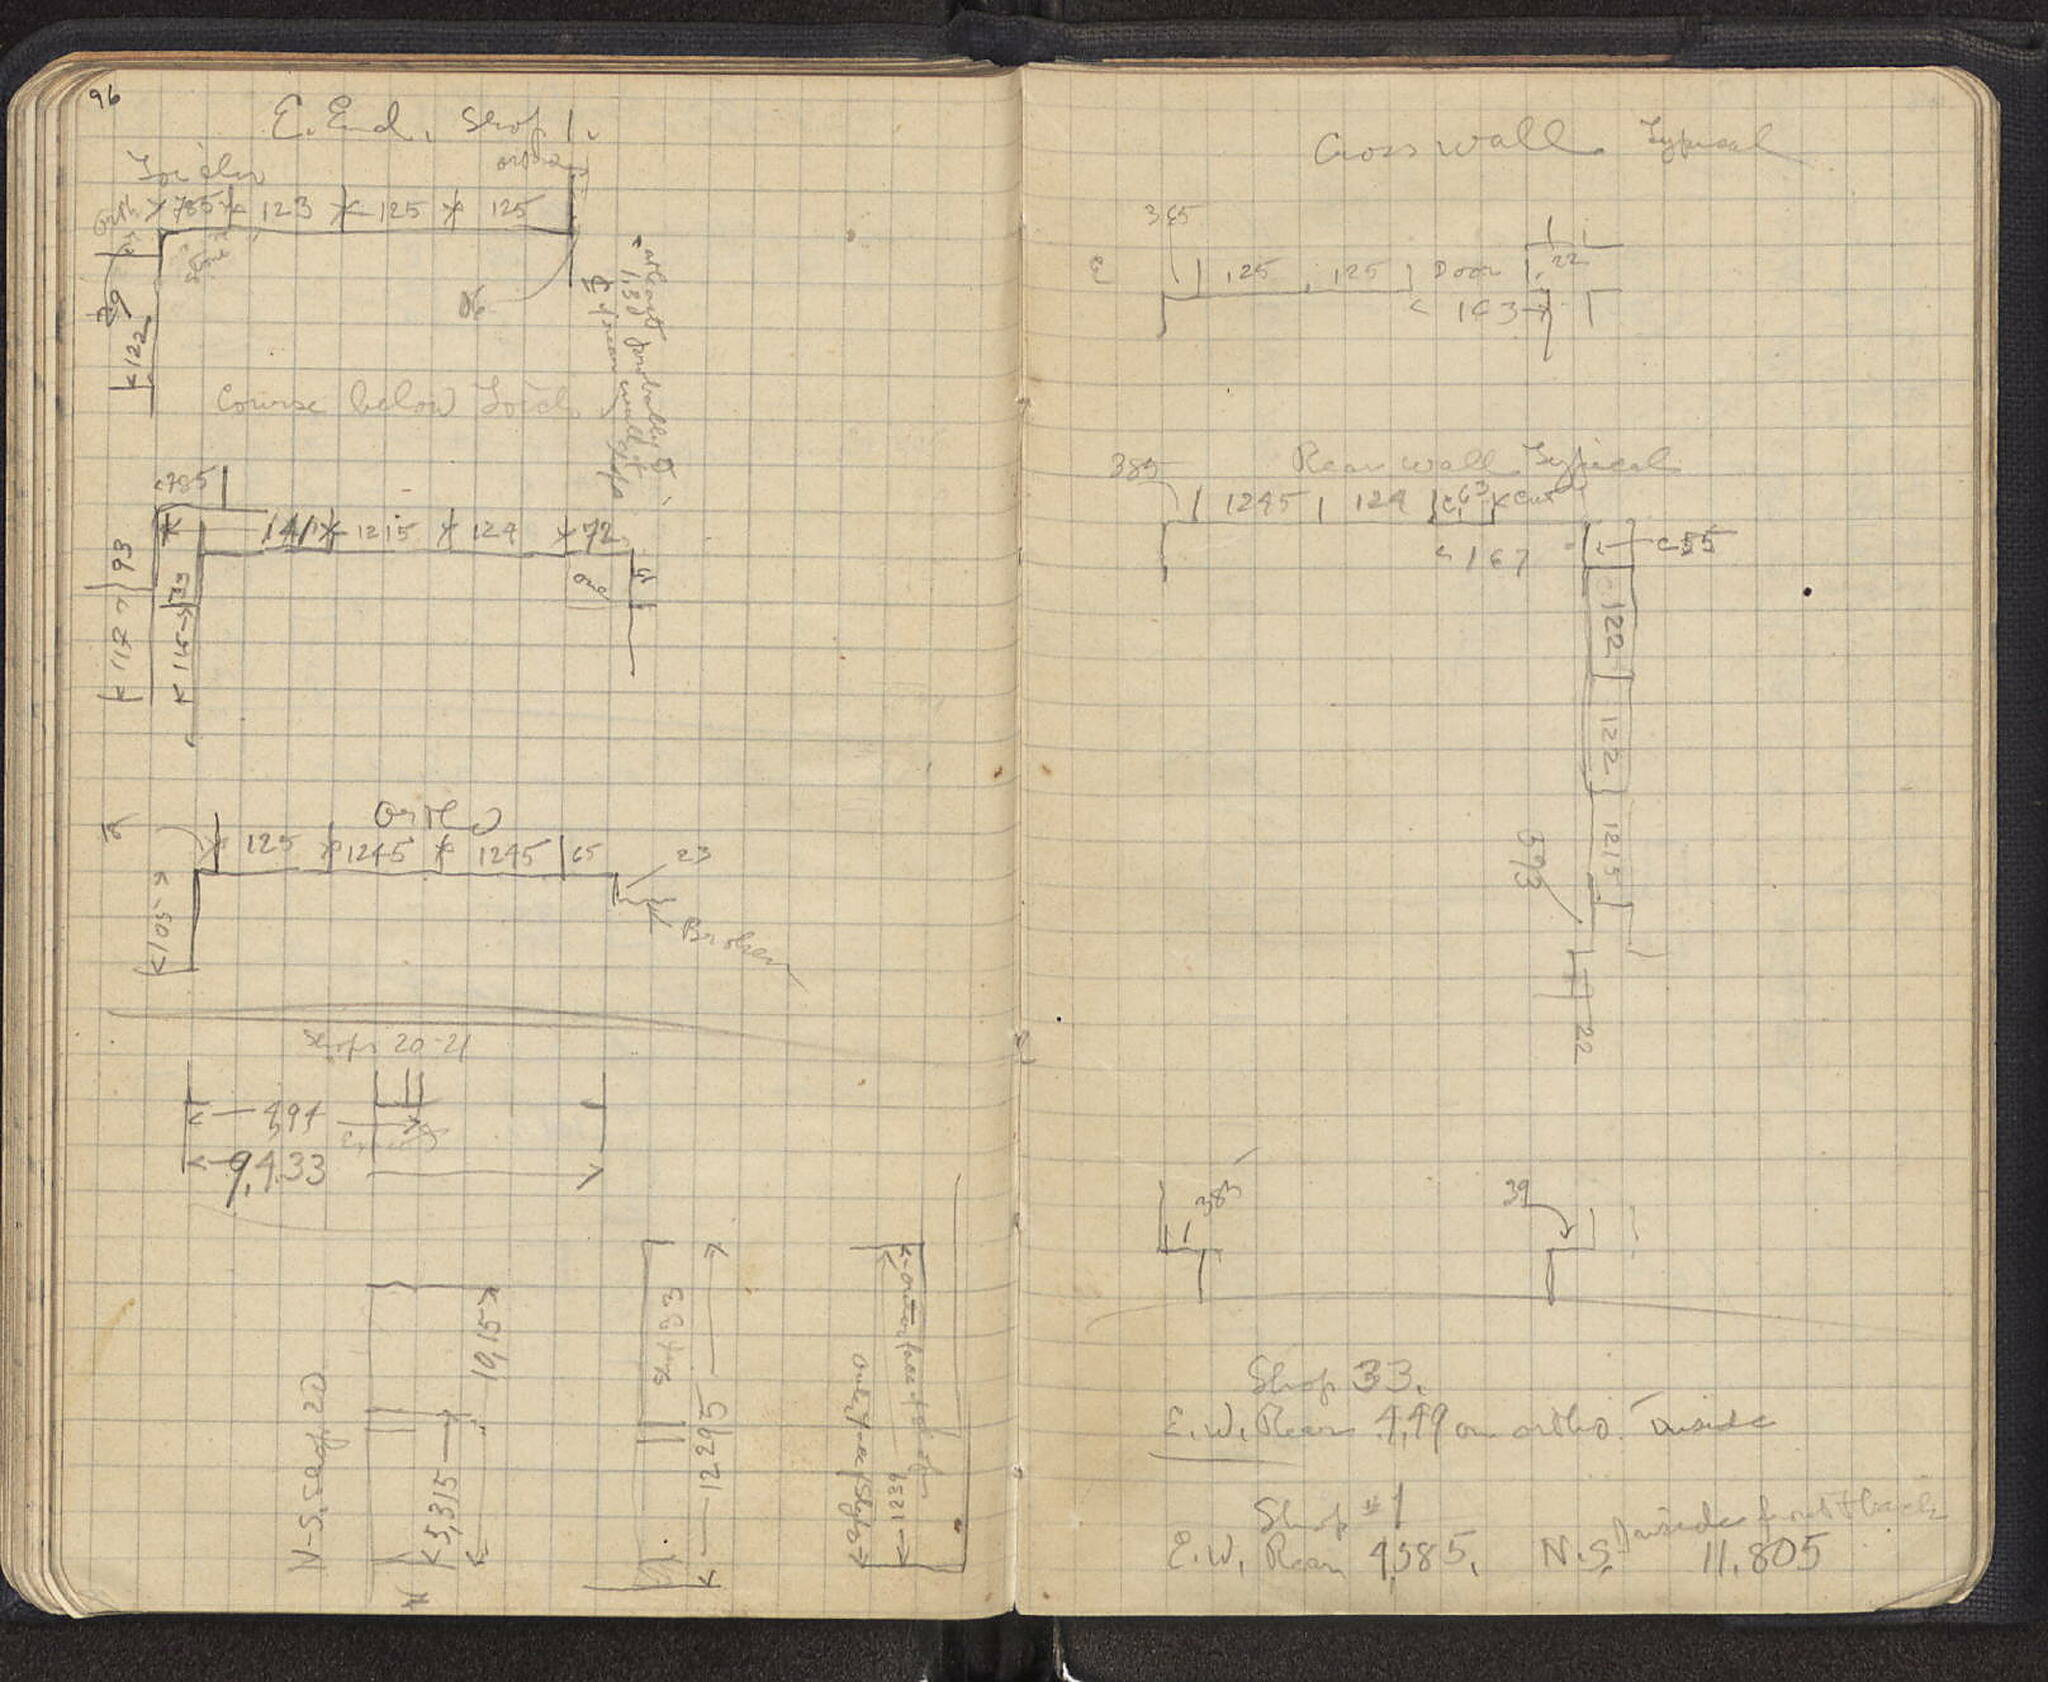 96
E. End. Shop 1.
Toichos
ortho
orth
785 123 125 125
39
122
Course below Toich
at least
1,30 probably
of rear wall
785
141 1215 124 72
93
112
115
one
Ortho
125 1245 1245 65
23
Broken
105
Shops 20-21
4,94
9,433
N-S. Shop 20
N
5,315
10,15
Shop 33
12295
1239
Cross wall Typical
365
125 125 Door 22
163
Rear wall Typical
385
1245 124 63 cut
167
55
122
122
1215
595
22
385
39
Shop 33.
E.W. Rear 4,49 on ortho. inside
Shop #1
inside front + back
E.W. Rear 4,585. N.S. 11.805